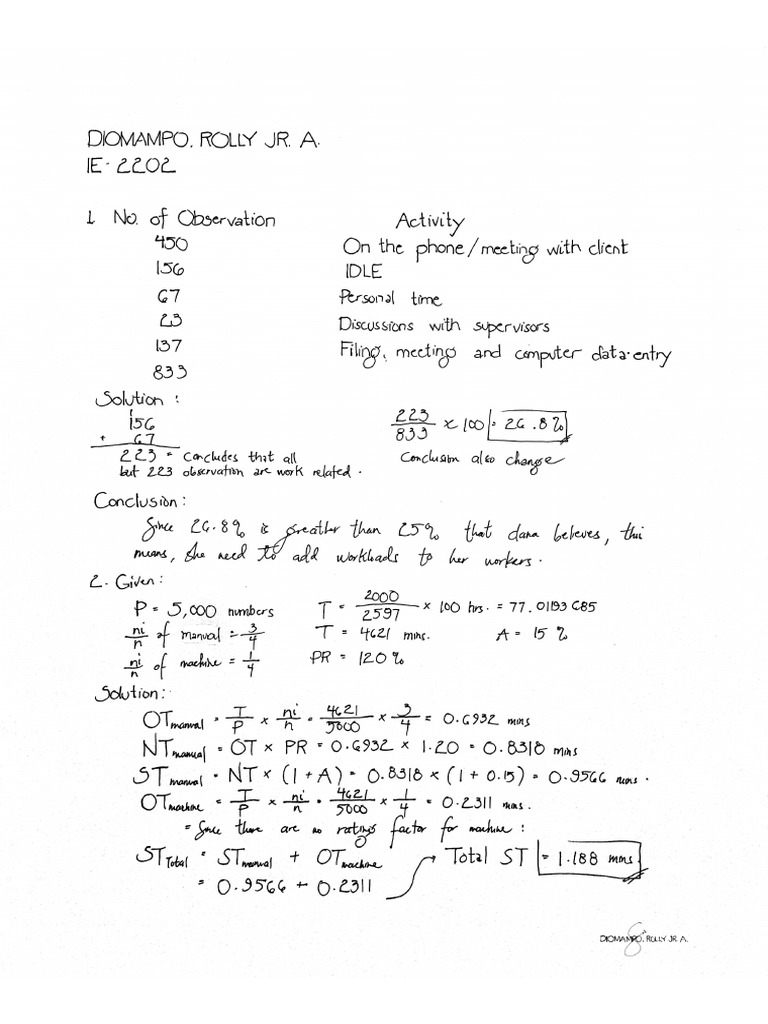 DIOMAMPO, ROLLY JR. A.
IE-2202
1. No. of Observation Activity
450 On the phone/meeting with client
156 IDLE
67 Personal time
23 Discussions with supervisors
137 Filing, meeting and computer data-entry
833
Solution:
1
156
+ 67
223 = Concludes that all
but 223 observation are work related.
223/833 x 100 = 26.8%
Conclusion also change
Conclusion:
Since 26.8% is greather than 25% that dana beleves, this
means, she need to add workloads to her workers.
2. Given:
P = 5,000 numbers T = 2000/2597 x 100 hrs. = 77.01193685
ni/n of manual = 3/4 T = 4621 mins. A = 15%
ni/n of machine = 1/4 PR = 120%
Solution:
OTmanual = T/P x ni/n = 4621/5000 x 3/4 = 0.6932 mins
NTmanual = OT x PR = 0.6932 x 1.20 = 0.8318 mins
STmanual = NT x (1 + A) = 0.8318 x (1 + 0.15) = 0.9566 mins.
OTmachine = T/P x ni/n = 4621/5000 x 1/4 = 0.2311 mins.
= Since there are no ratings factor for machine:
STTotal = STmanual + OTmachine → Total ST = 1.188 mins
= 0.9566 + 0.2311
DIOMAMPO, ROLLY JR. A.